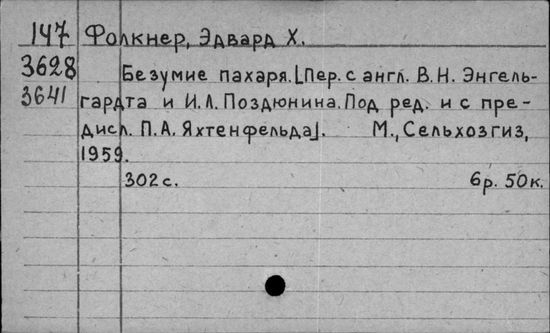 147 Фолкнер, Эдвард Х.
3628 Безумие пахаря. [Пер. с англ. В.Н. Энгель-
3641 гардта и И.Л. Поздюнина. Под ред. и с пре-
дисл. П.А. Яхтенфельда]. М., Сельхозгиз,
1959.
302 с. 6 р. 50 к.